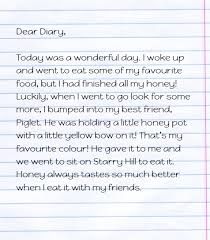 Dear Diary,
Today was a wonderful day. I woke up
and went to eat some of my favourite
food, but I had finished all my honey!
Luckily, when I went to go look for some
more, I bumped into my best friend,
Piglet. He was holding a little honey pot
with a little yellow bow on it! That's my
favourite colour! He gave it to me and
we went to sit on Starry Hill to eat it.
Honey always tastes so much better
when I eat it with my friends.